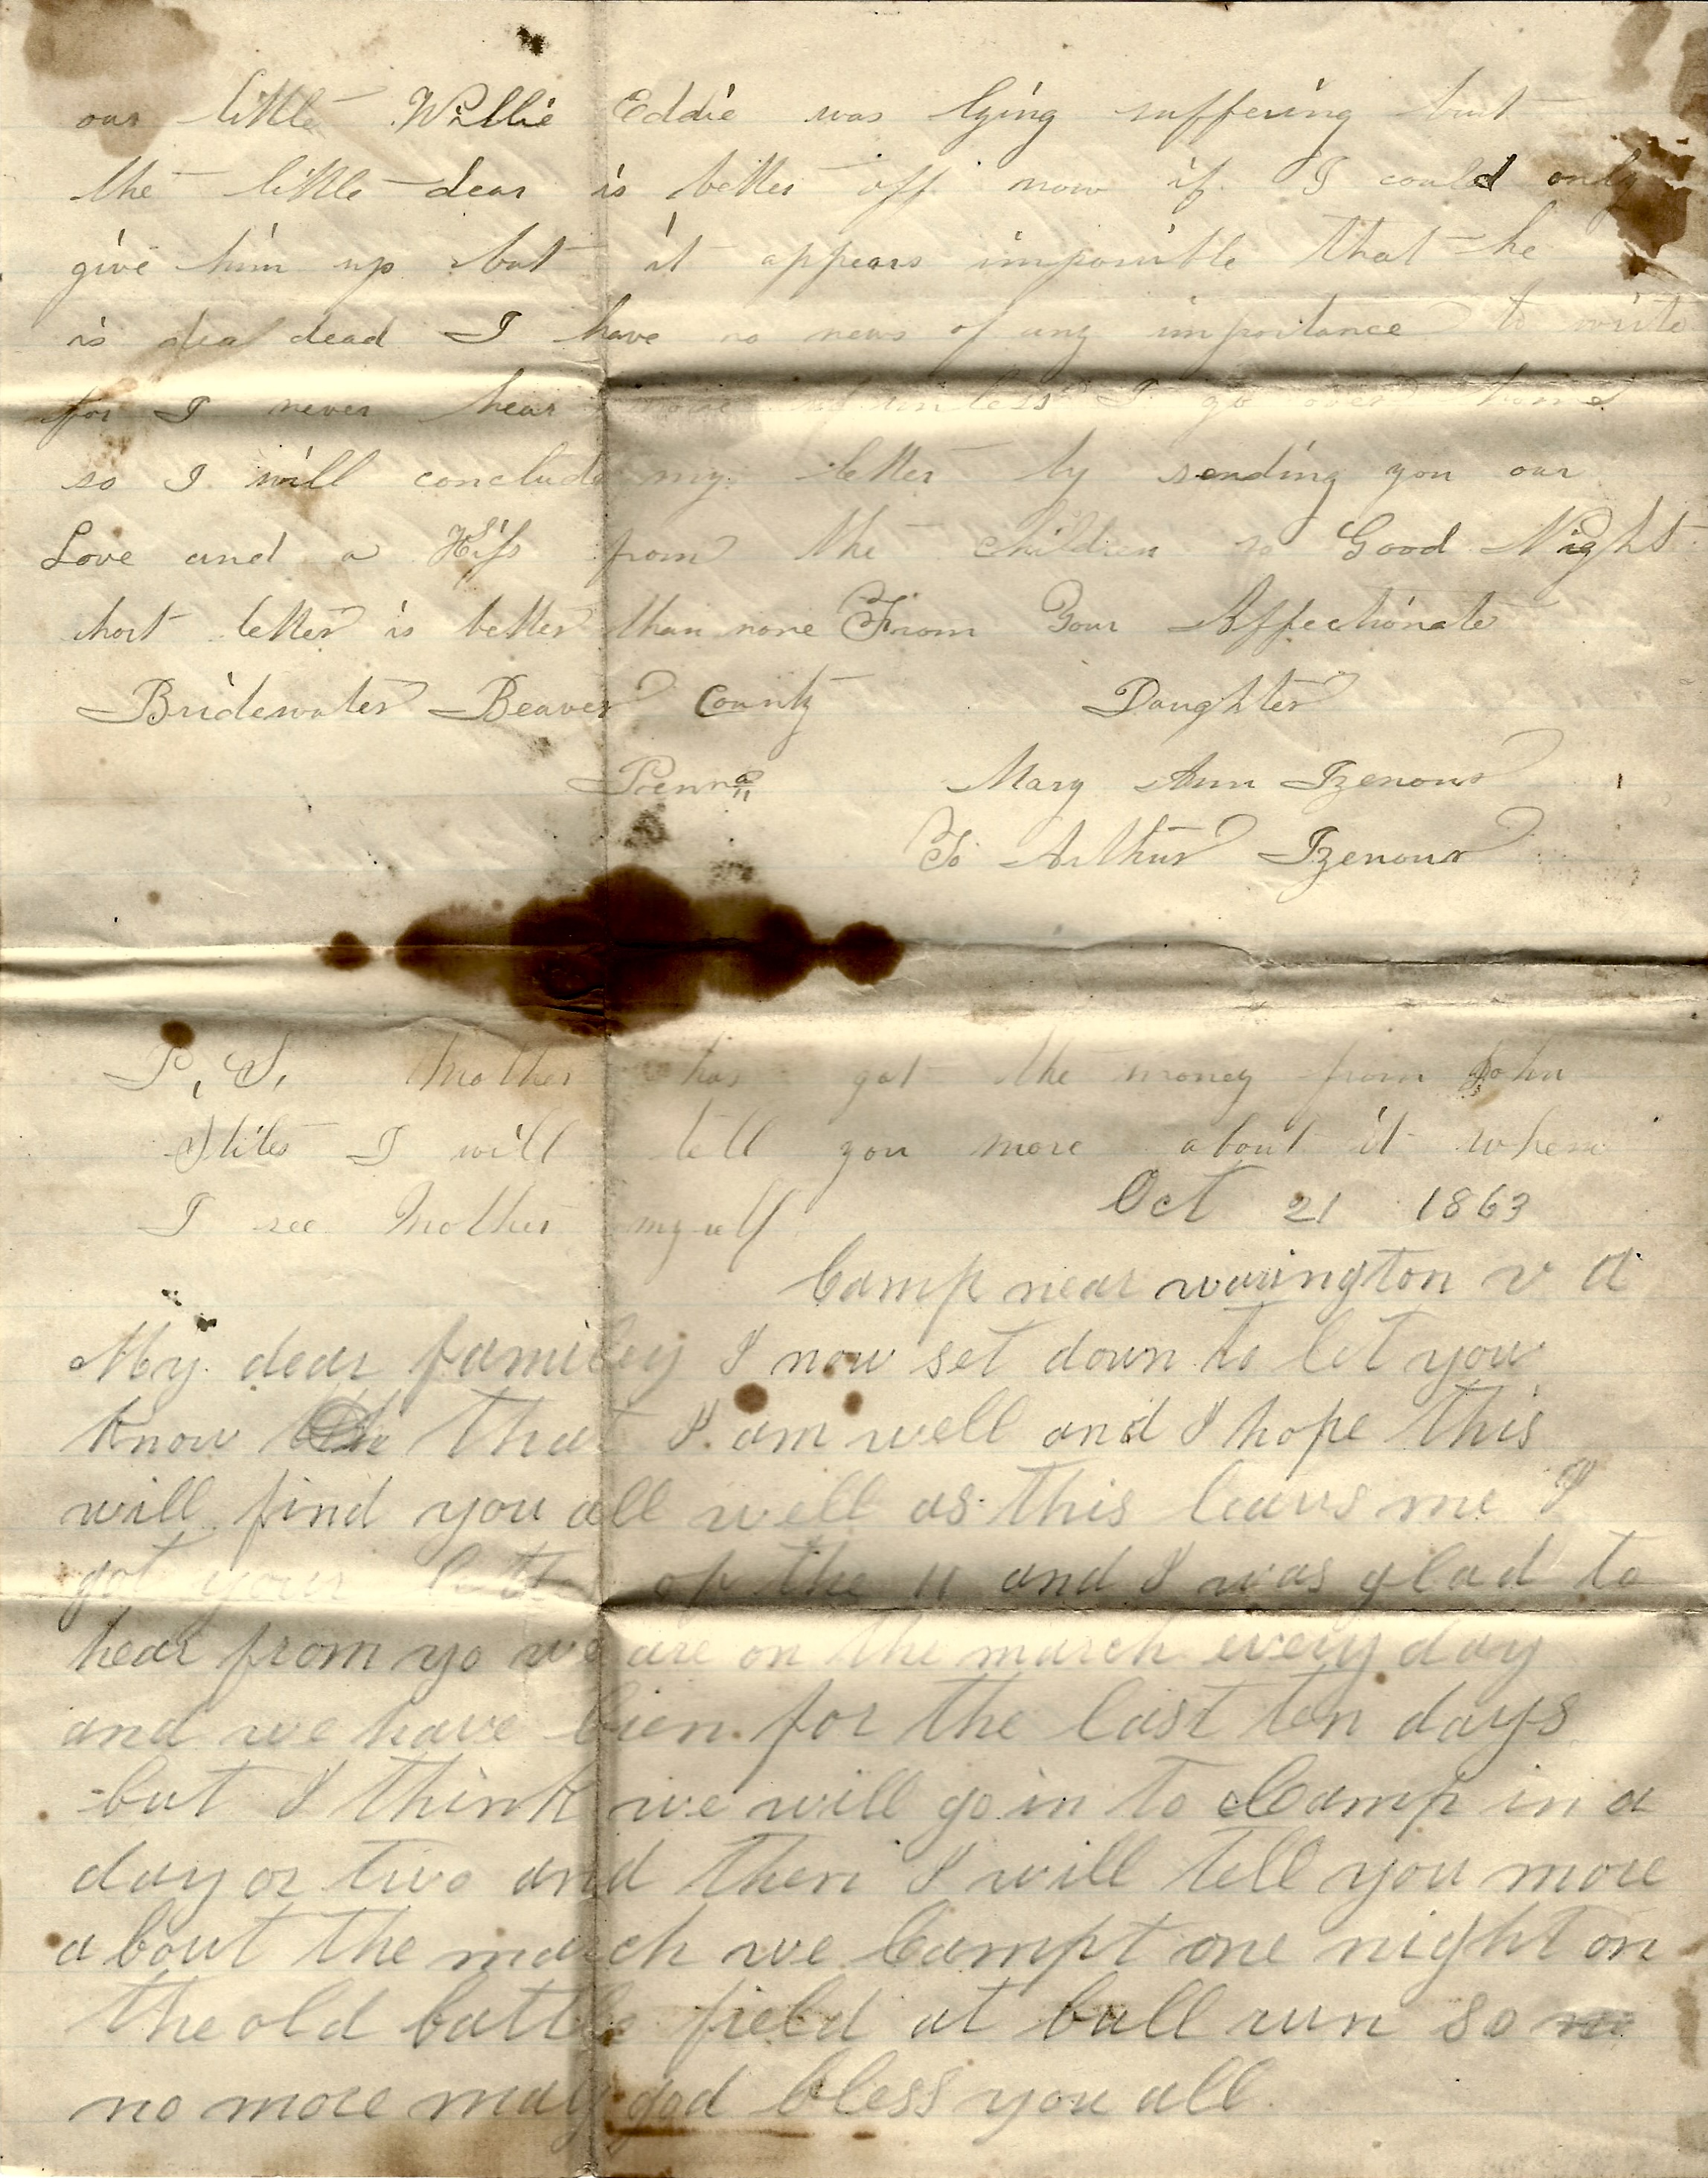 our little Willie Eddie was lying suffering but
the little dear is better off now if I could only
give him up but it appears imposible that he
is dea dead I have no news of any importance to write
for I never hear unless I go over home
so I will conclude my letter by sending you our
Love and a Kiss from the children so Good Night
short letter is better than none From Your Affectionate
Bridewater Beaver County Daughter
Penna Mary Ann Izenour
To Arthur Izenour
P, S, Mother has got the money from John
Stiles I will tell you more about it when
I see Mother myself
Oct 21 1863
Camp near warington v a
My dear familey I now set down to let you
know that I am well and I hope this
will find you all well as this leavs me I
got your letter of the 11 and I was glad to
hear from yo we are on the march every day
and we have bien for the last ten days
but I think we will go in to Camp in a
day or two and then I will tell you more
a bout the march we Campt one night on
the old battle field at bull run so
no more may god bless you all